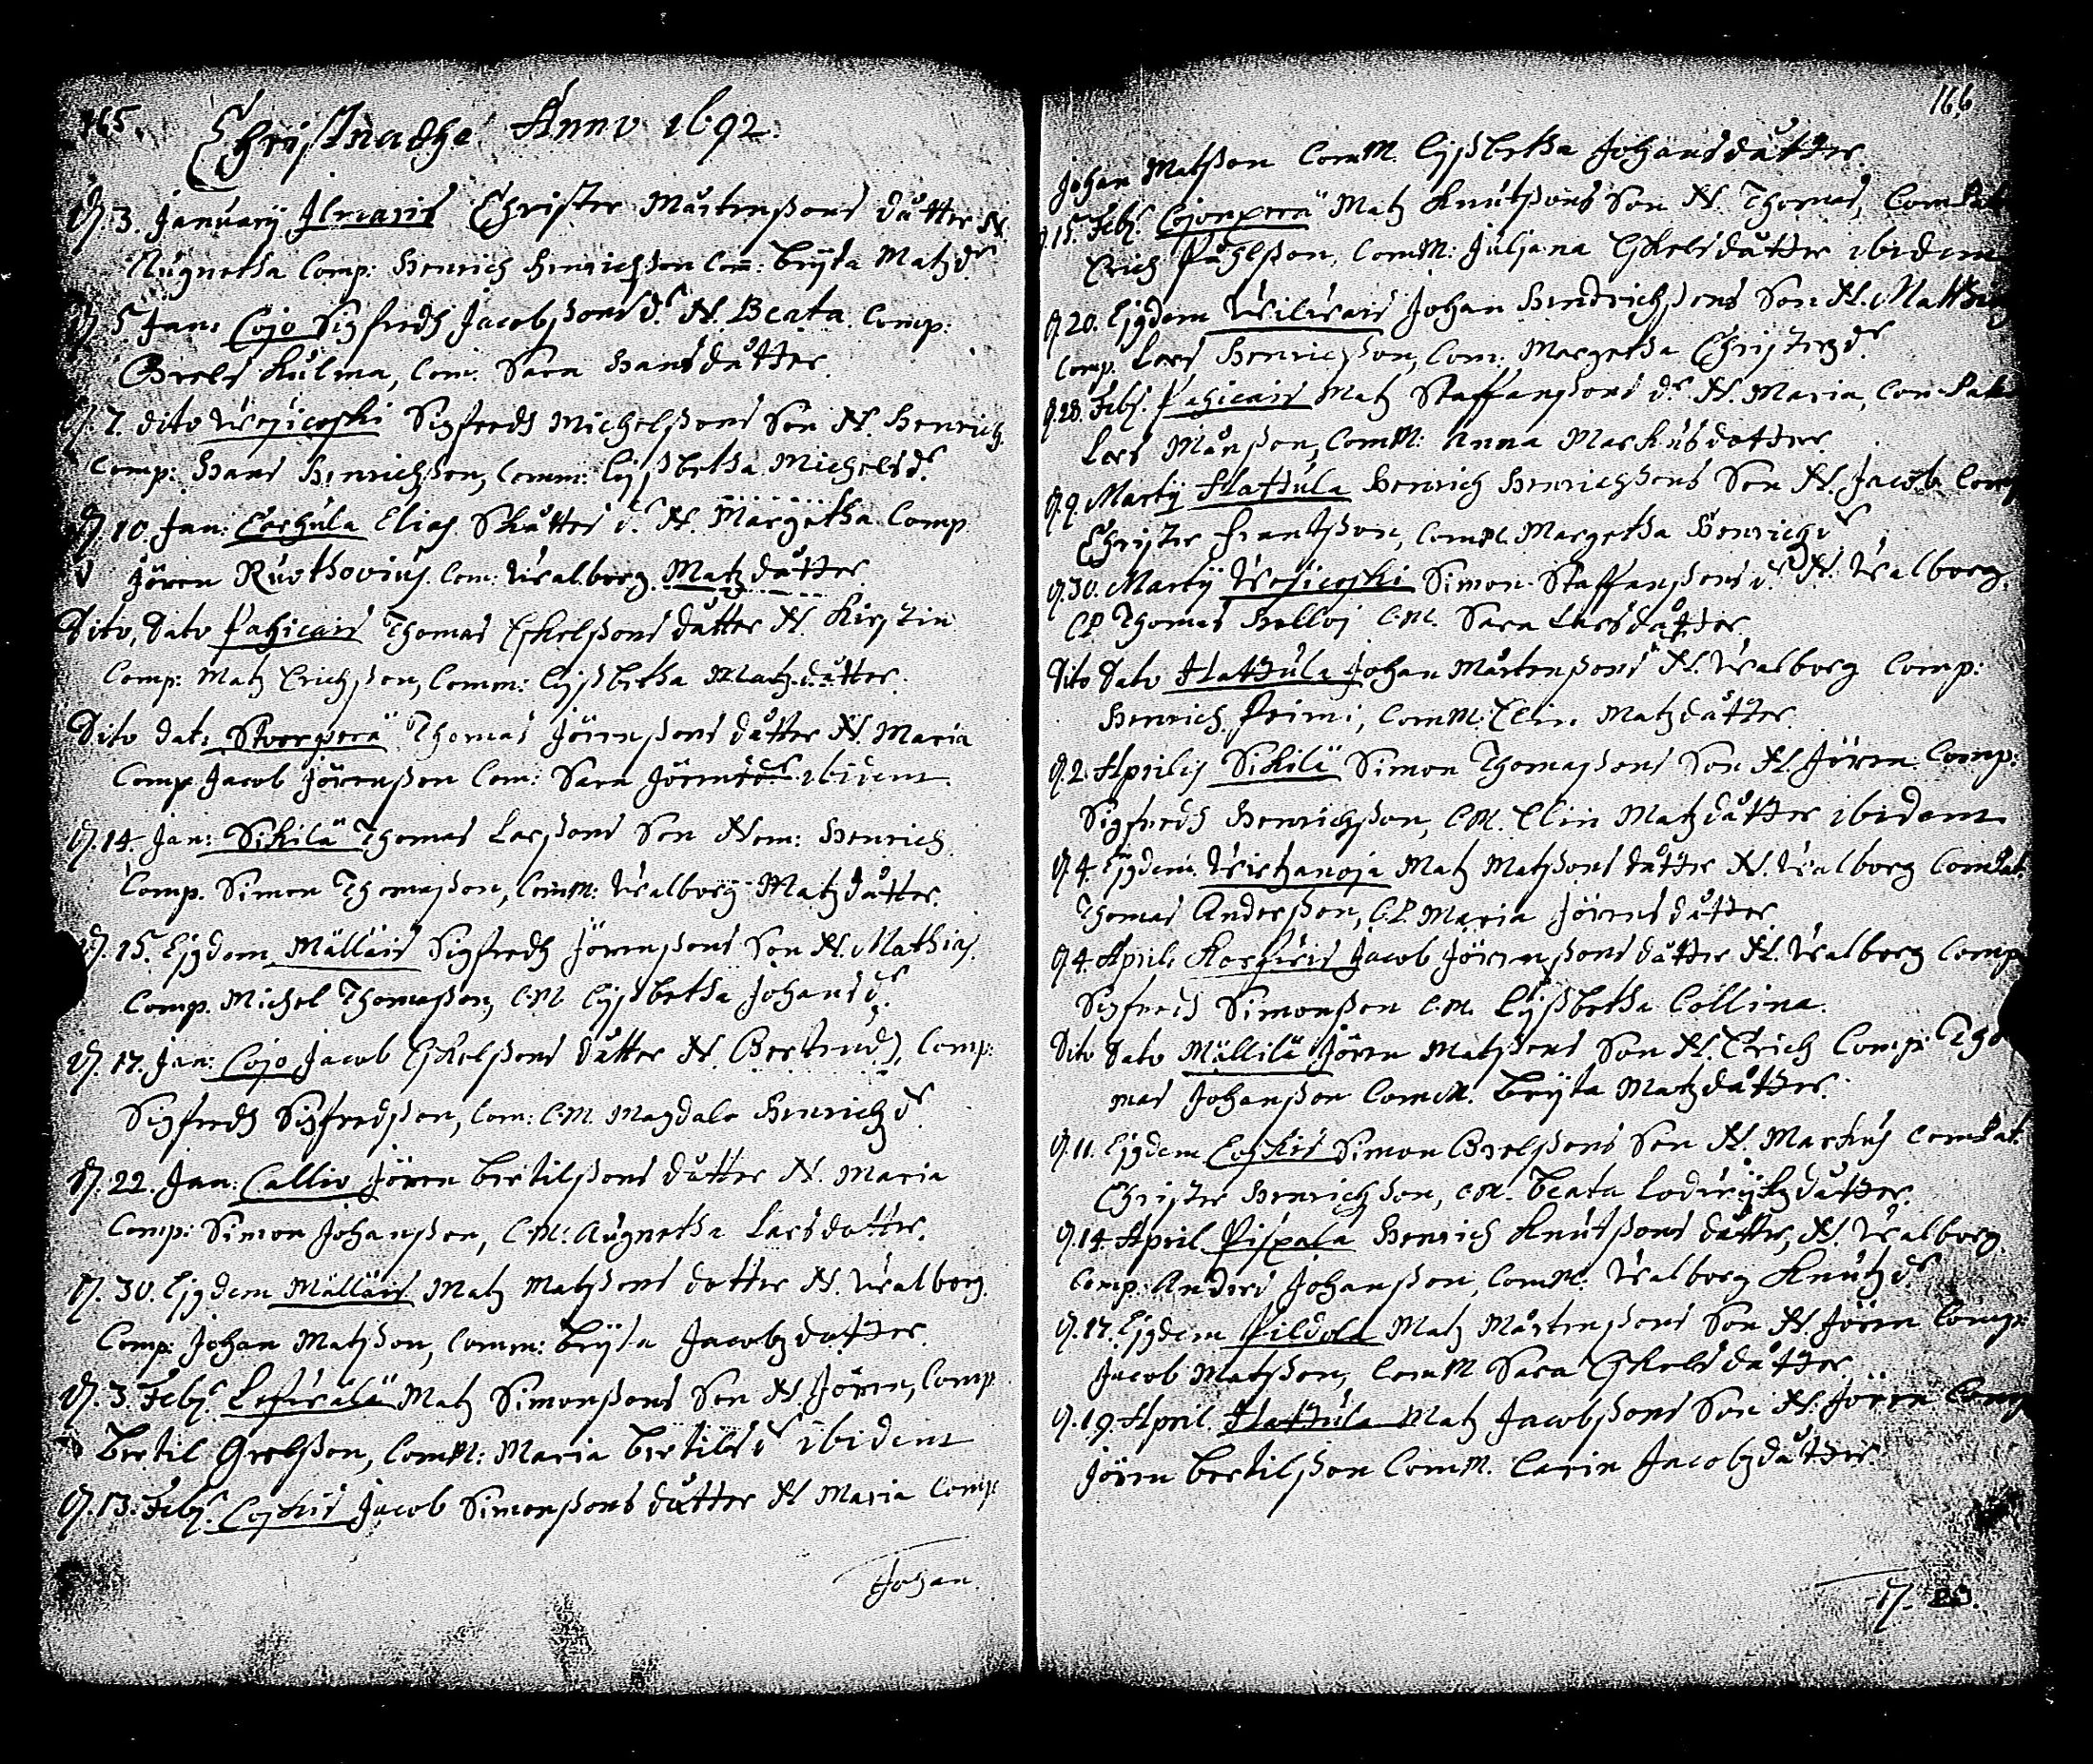 165.
Christnadhe Anno 1692.
D. 3. Januarij Ilmaris Christer Mårtenßons dåtter N.
Augnetha Comp: Henrich Henrichsson Com: Brijta Matzdr
D 5 Jan: Cojo Sigfredh Jacobßons dr N. Beata. Comp:
Grels Kulma, Com: Sara Hansdåtter.
D. 7. dito Wesicoski Sigfredh Michelßons Son N. Henrich
Comp: Hans Henrichßon, Comm: Lijsbetha Michelsdr
D. 10. Jan: Corhula Elias Skåttes dr N. Margetha Comp
Jören Ruothovius. Com: Walborg Matzdåtter
Dito, Dato Pahicais Thomas Eskelßons dåtter N. Kirstin
Comp: Matz Erichsson, Comm: Lijsbetha Matzdåtter.
Dito dato Stoorperä Thomas Jörenßons dåtter N. Maria
Comp Jacob Jörenßon Com: Sara Jörensdr ibidem.
D. 14. Jan: Sikilä Thomas Larßons Son Nom: Henrich
Comp. Simon Thomaßon, ComM: Walborg Matzdåtter.
D. 15. Ejgdem Mälläis Sigfredh Jörenßons Son N. Mathias.
Comp. Michel Thomaßon, C.M Lijsbetha Johansdr
D. 17. Jan: Cojo Jacob Eskelßons dåtter N. Bertrud, Comp:
Sigfredh Sigfredßon, Com: C.M. Magdale Henrichzdr
D. 22. Jan: Callio Jören Bertilßons dåtter N. Maria
Comp: Simon Johanßon, C.M: Augnetha Larsdotter.
D. 30. Ejgdem Mälläis Matz Matßons dotter N. Walborg.
Comp: Johan Matßon, Comm: Brijta Jacobzdotter.
D. 3. Febr. Lefwälä Matz Simonßons Son N Jören, Comp
Bertil Grelßon, ComM: Maria Bertilsdr ibidem
D. 13. Febr. Coskis Jacob Simonßons dåtter N Maria Comp
Johan.
166.
Johan Matßon ComM. Lijsbetha Johansdåtter.
D. 15. Febr. Cojonperä Matz Knutßons Son N. Thomas, ComPat
Erich Påhlßon, ComM: Juliana Eskelsdåtter ibidem
D. 20. Ejgdem Wilwais Johan Hendrichßons Son N. Matthias
Comp. Lars Henrichßon, Com: Margetha Christerzdr
D. 28. Febr. Pahicais Matz Staffanßons dr N. Maria, Con Pate
Lars Månßon, ComM: Anna Markusdotter.
D. 9. Martij Hattula Henrich Henrichßons Son N. Jacob Comp
Christer Frantßon, ComM. Margetha Henrichzdr
D. 30. Martij Wesicoski Simon Staffanßons dr N. Walborg.
CP Thomas Helloj C.M. Sara Larsdåtter
Dito Dato Hattula Johan Mårtenßons N. Walborg Comp:
Henrich Primi, ComM. Elin Matzdåtter
D. 2. Aprilis Sikilä Simon Thomaßons Son N. Jören Comp:
Sigfredh Henrichßon, C.M. Elin Matzdåtter ibidem
D. 4. Ejgdem Wirtzanoja Matz Matßons dåtter N. Walborg ComPat.
Thomas Anderßon, C.P. Maria Jörensdåtter
D. 4. April. Korfwis Jacob Jörenßons dåtter N. Walborg Comp
Sigfredh Simonßon C.M. Lijsbetha Collina.
Dito Dato Mällilä Jören Matßons Son N. Erich Comp: Tho
mas Johanßon ComM. Brijta Matzdåtter.
D. 11. Ejgdem Coskis Simon Grelßons Son N. Markus ComPat.
Christer Henrichßon, C.M. Beata Lodwijkzdåtter.
D. 14. April Pispala Henrich Knutßons dåtter, N. Walborg.
Comp: Anders Johanßon, ComM: Walborg Knutzdr
D. 17. Ejgdem Pildola Matz Mårtenßons Son N Jören Comp:
Jacob Matßon, ComM Sara Eskelsdåtter.
D. 19. April. Hattula Matz Jacobßons Son N. Jören Comp
Jören Bertilßon ComM. Carin Jacobzdåtter.